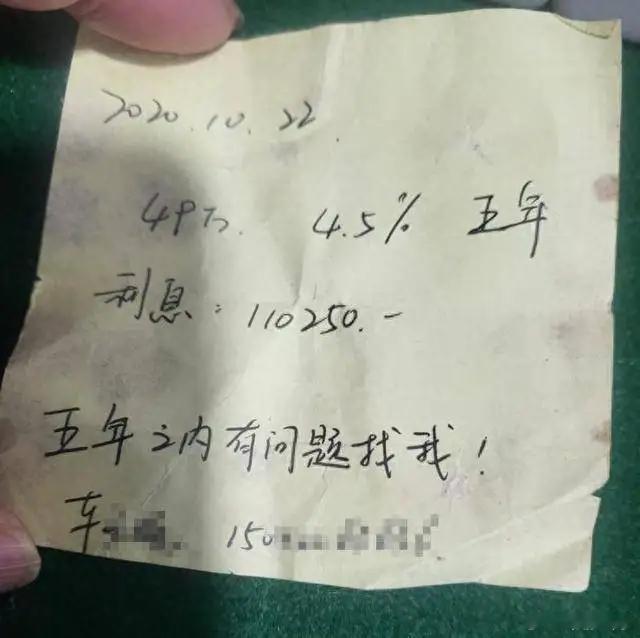 2020.10.22.
49万. 4.5% 五年
利息:110250.-
五年之内有问题找我!
车 150